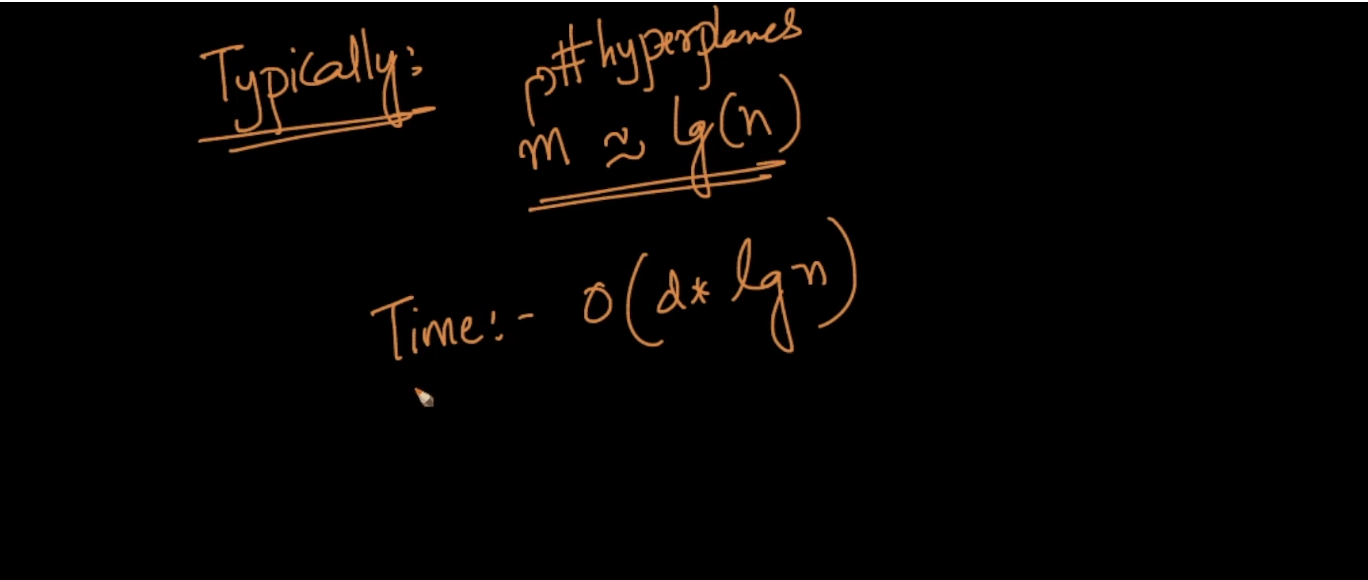 Typically:
# hyperplanes
m ≈ lg(n)
Time:- O(d* lgn)